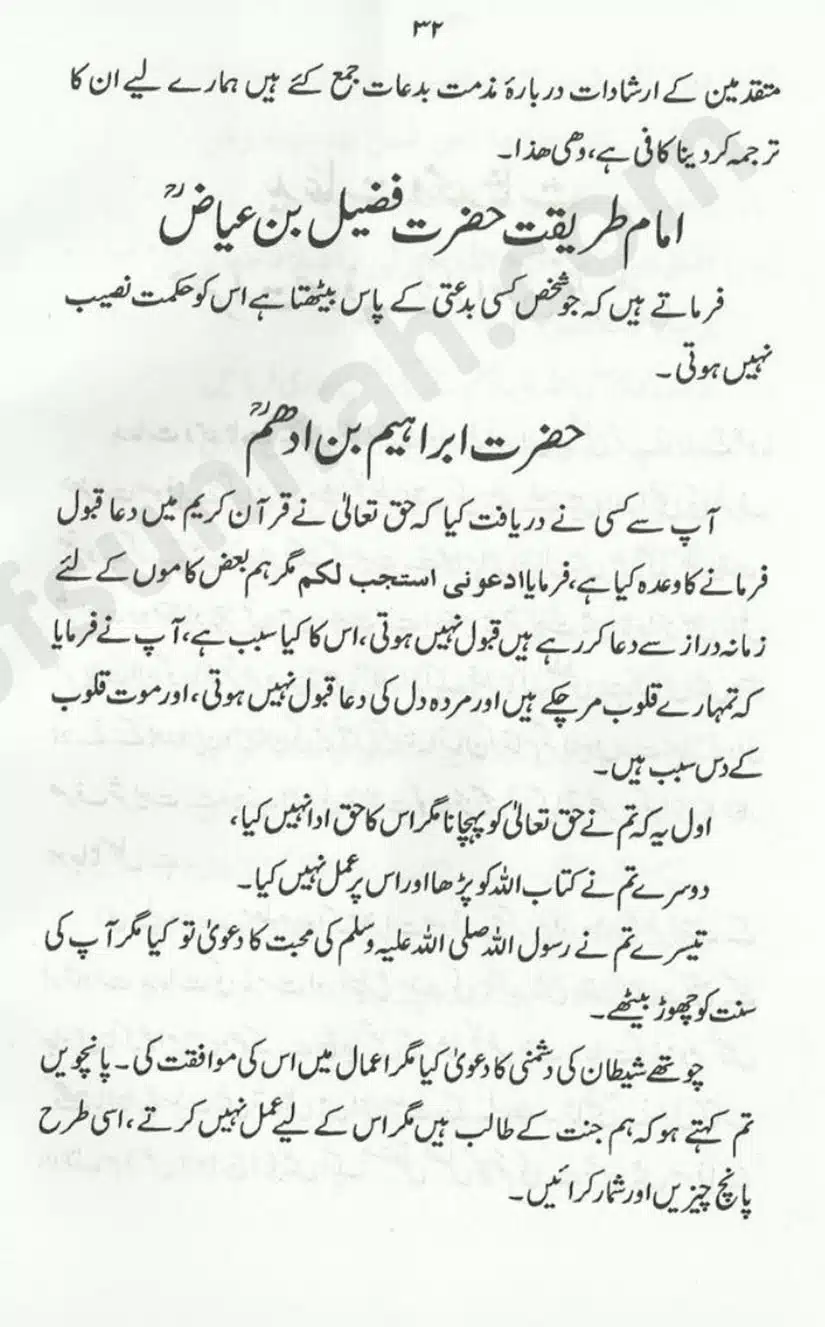 ۳۲
متقدمین کے ارشادات دربارۂ مذمت بدعات جمع کئے ہیں ہمارے لیے ان کا
ترجمہ کردینا کافی ہے، وھی ھذا۔
امام طریقت حضرت فضیل بن عیاضؒ
فرماتے ہیں کہ جو شخص کسی بدعتی کے پاس بیٹھتا ہے اس کو حکمت نصیب
نہیں ہوتی۔
حضرت ابراہیم بن ادھمؒ
آپ سے کسی نے دریافت کیا کہ حق تعالیٰ نے قرآن کریم میں دعا قبول
فرمانے کا وعدہ کیا ہے، فرمایا ادعونی استجب لکم مگر ہم بعض کاموں کے لئے
زمانہ دراز سے دعا کر رہے ہیں قبول نہیں ہوتی، اس کا کیا سبب ہے، آپ نے فرمایا
کہ تمہارے قلوب مر چکے ہیں اور مردہ دل کی دعا قبول نہیں ہوتی، اور موت قلوب
کے دس سبب ہیں۔
اول یہ کہ تم نے حق تعالیٰ کو پہچانا مگر اس کا حق ادا نہیں کیا،
دوسرے تم نے کتاب اللہ کو پڑھا اور اس پر عمل نہیں کیا۔
تیسرے تم نے رسول اللہ صلی اللہ علیہ وسلم کی محبت کا دعویٰ تو کیا مگر آپ کی
سنت کو چھوڑ بیٹھے۔
چوتھے شیطان کی دشمنی کا دعویٰ کیا مگر اعمال میں اس کی موافقت کی۔ پانچویں
تم کہتے ہو کہ ہم جنت کے طالب ہیں مگر اس کے لیے عمل نہیں کرتے، اسی طرح
پانچ چیزیں اور شمار کرائیں۔